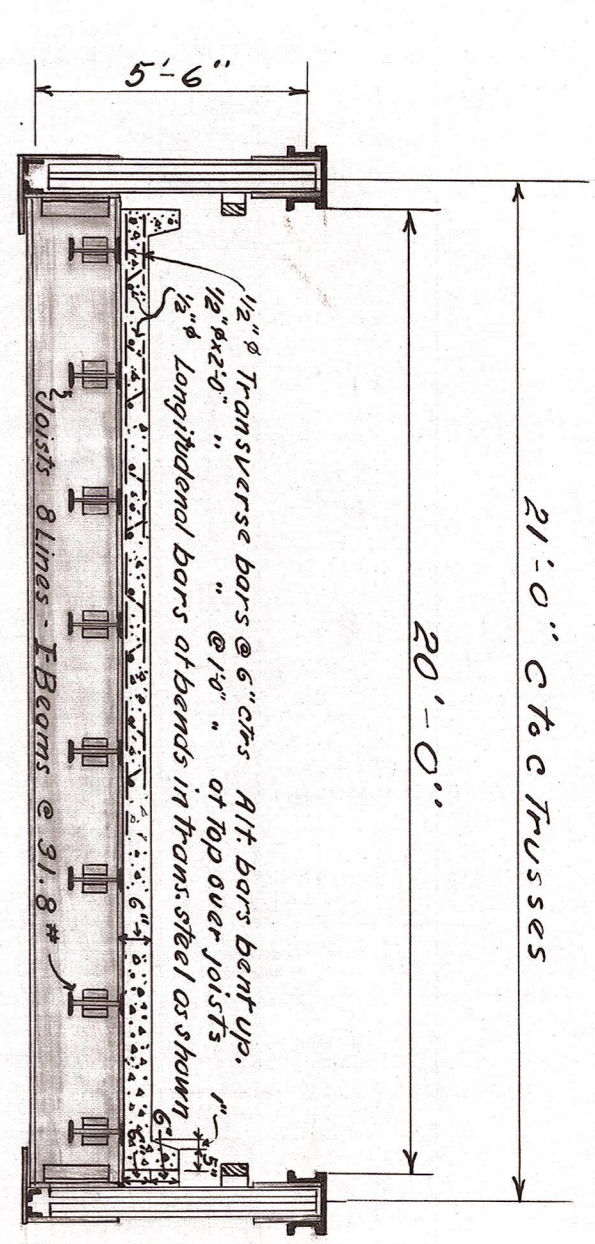 21'-0" C to C Trusses
20'-0"
5'-6"
1/2"ϕ Transverse bars @ 6" ctrs Alt bars bent up.
1/2"ϕx2'-0" " " @ 1'-0" " at Top over joists
1/2"ϕ Longitudenal bars at bends in trans. steel as shown
1"
5"
6"
6"
Joists 8 Lines - I-Beams @ 31.8#